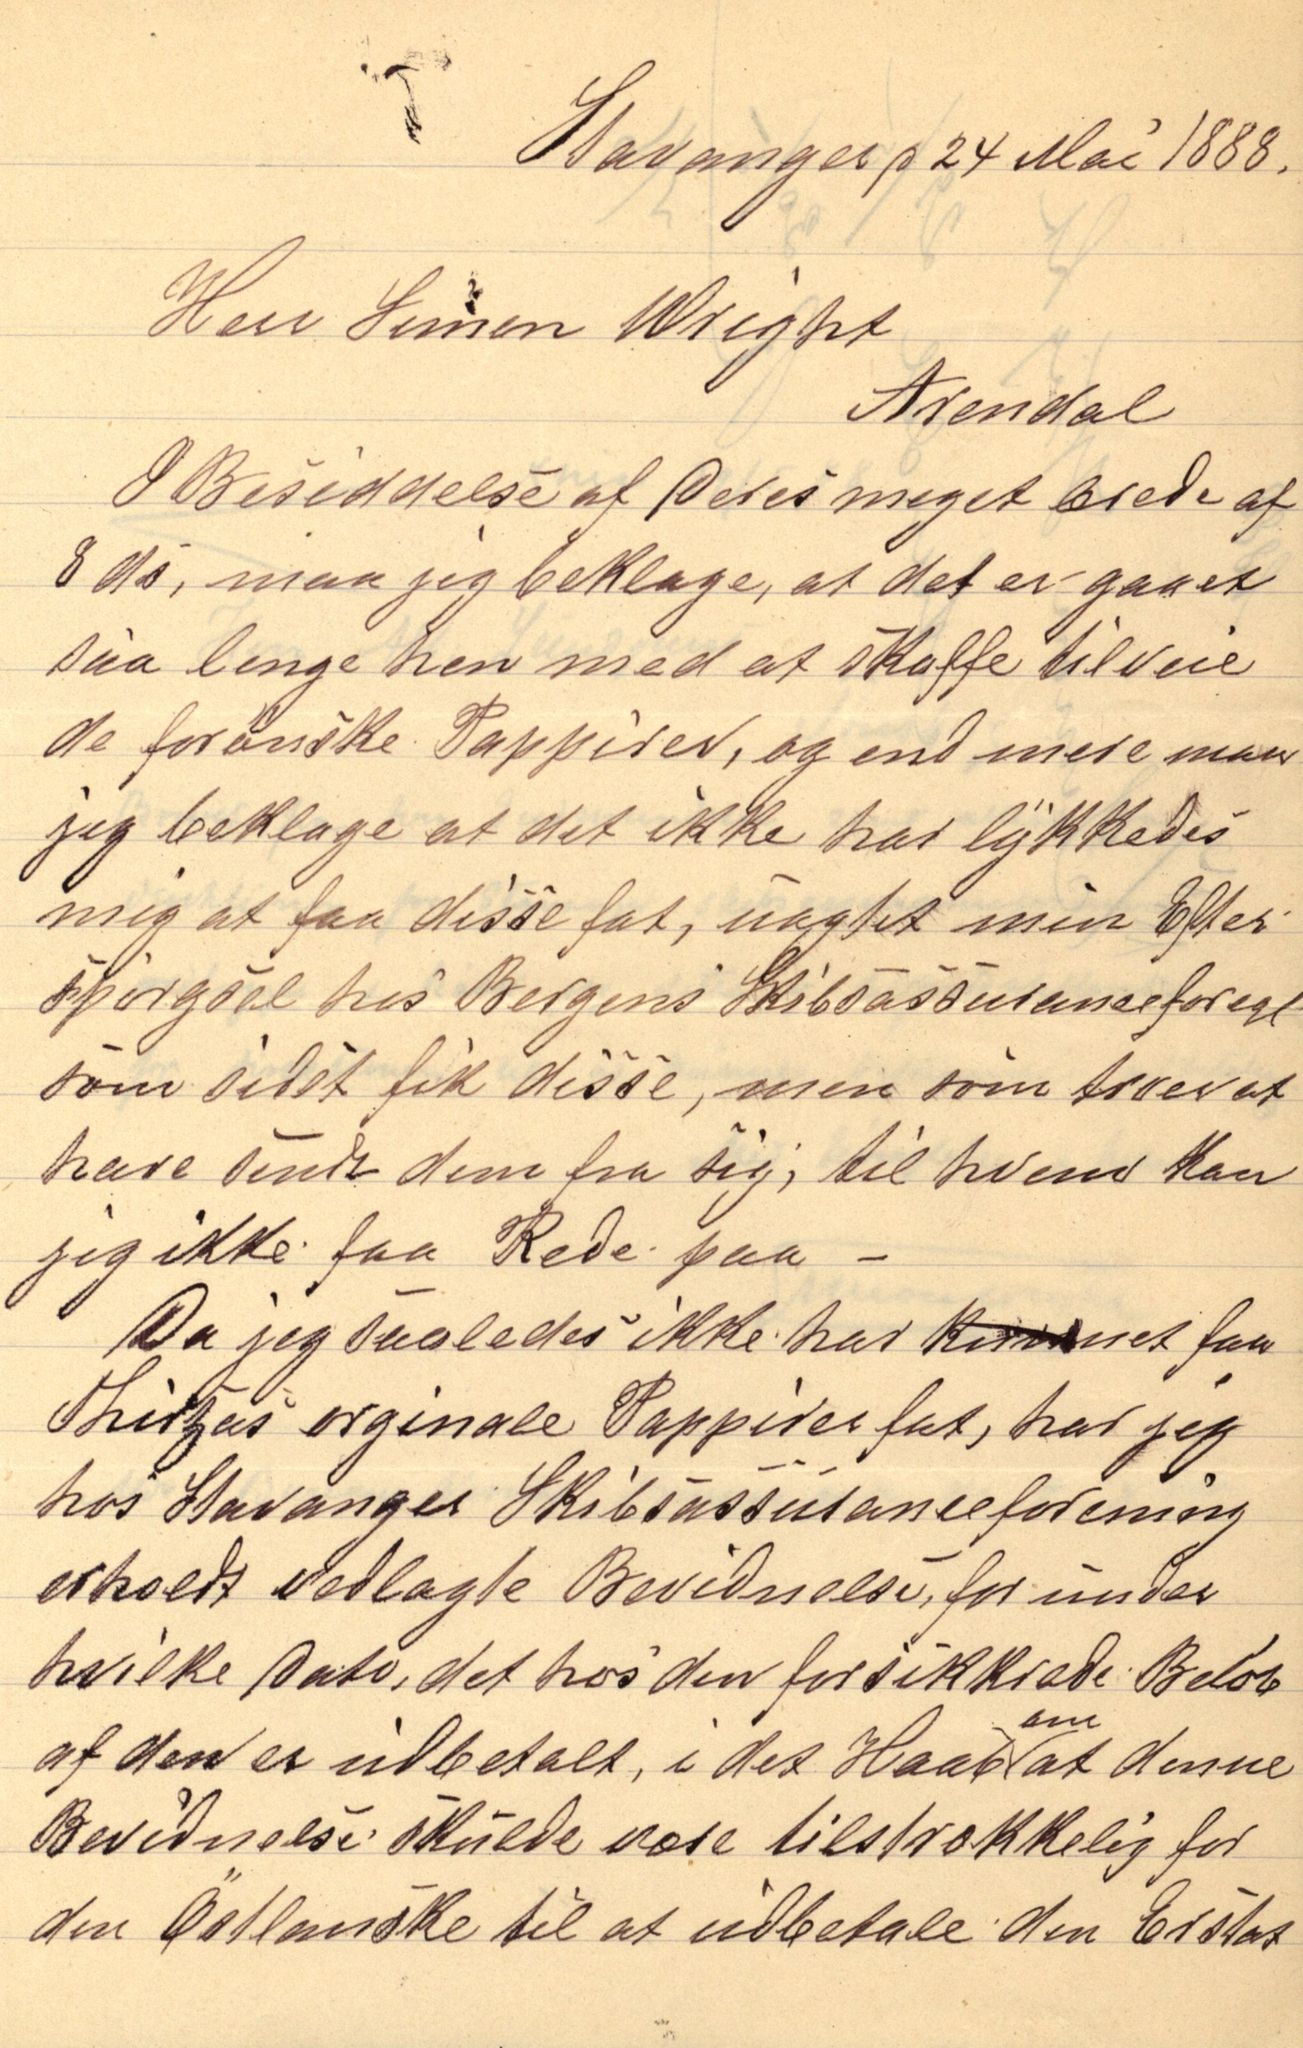 Stavanger p 24 Mai 1888.
Herr Simon Wright
Arendal
I Besiddelse af Deres meget ærede af
8 ds, maa jeg beklage, at det er gaaet
saa lenge hen med at skaffe tilveie
de forönske Pappirer, og end mere maa
jeg beklage at det ikke har lykkedes
mig at faa disse fat, uagtet min Efter
spörgsel hos Bergens Skibsassuranceforegl
som sidst fik disse, men som troer at
have sendt dem fra sig, til hvem kan
jeg ikke faa Rede paa –
Da jeg saaledes ikke har kunnet faa
Thirzas orginale Pappirer fat, har jeg
hos Stavanger Skibsassuranceforening
erholdt vedlagte Bevidnelse, for under
hvilke Dato, det hos den forsikkrede Belöb
af den er udbetalt, i det Haab at denne
Bevidnelse skulde være tilstrækkelig for
den Östlanske til at udbetale den Erstat